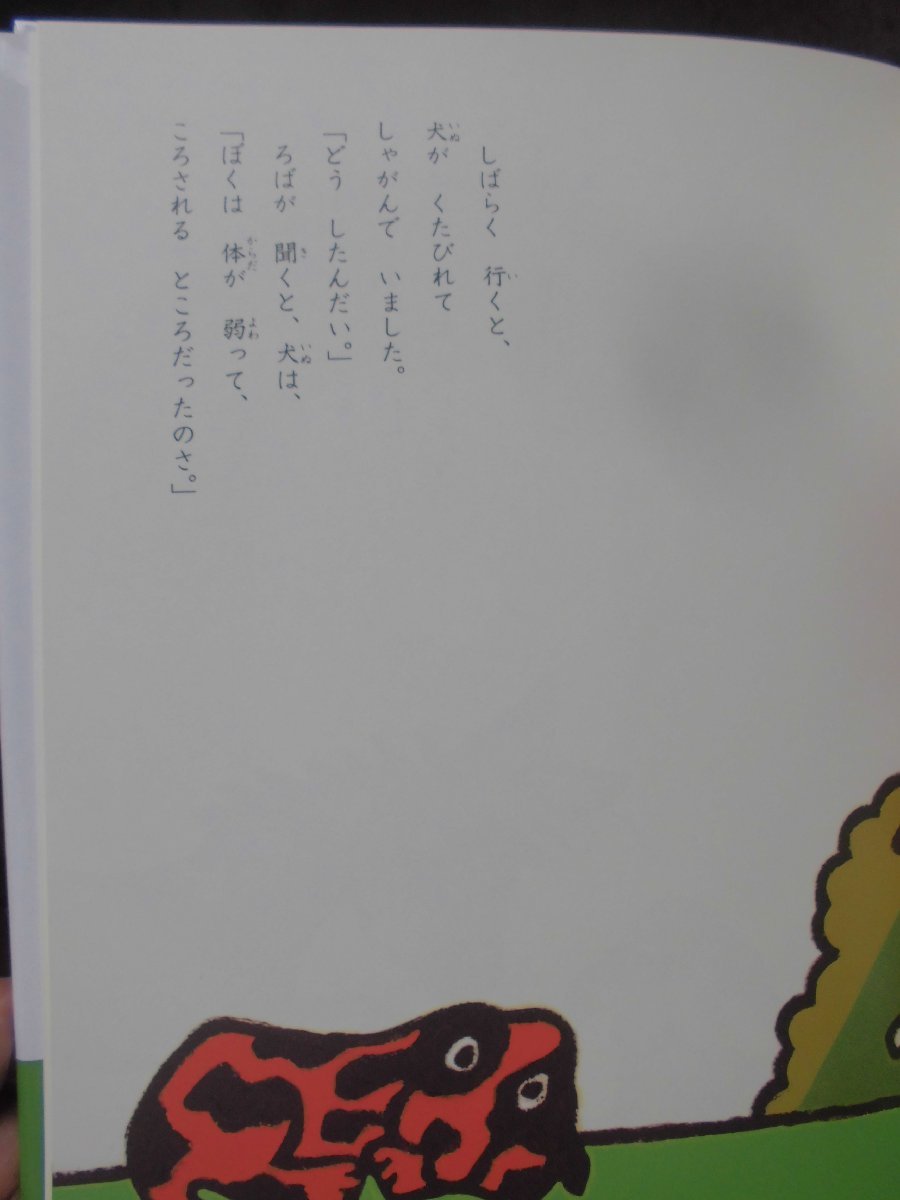 しばらく　行くと、
犬が　くたびれて
しゃがんで　いました。
「どう　したんだい。」
ろばが　聞くと、犬は、
「ぼくは　体が　弱って、
ころされる　ところだったのさ。」